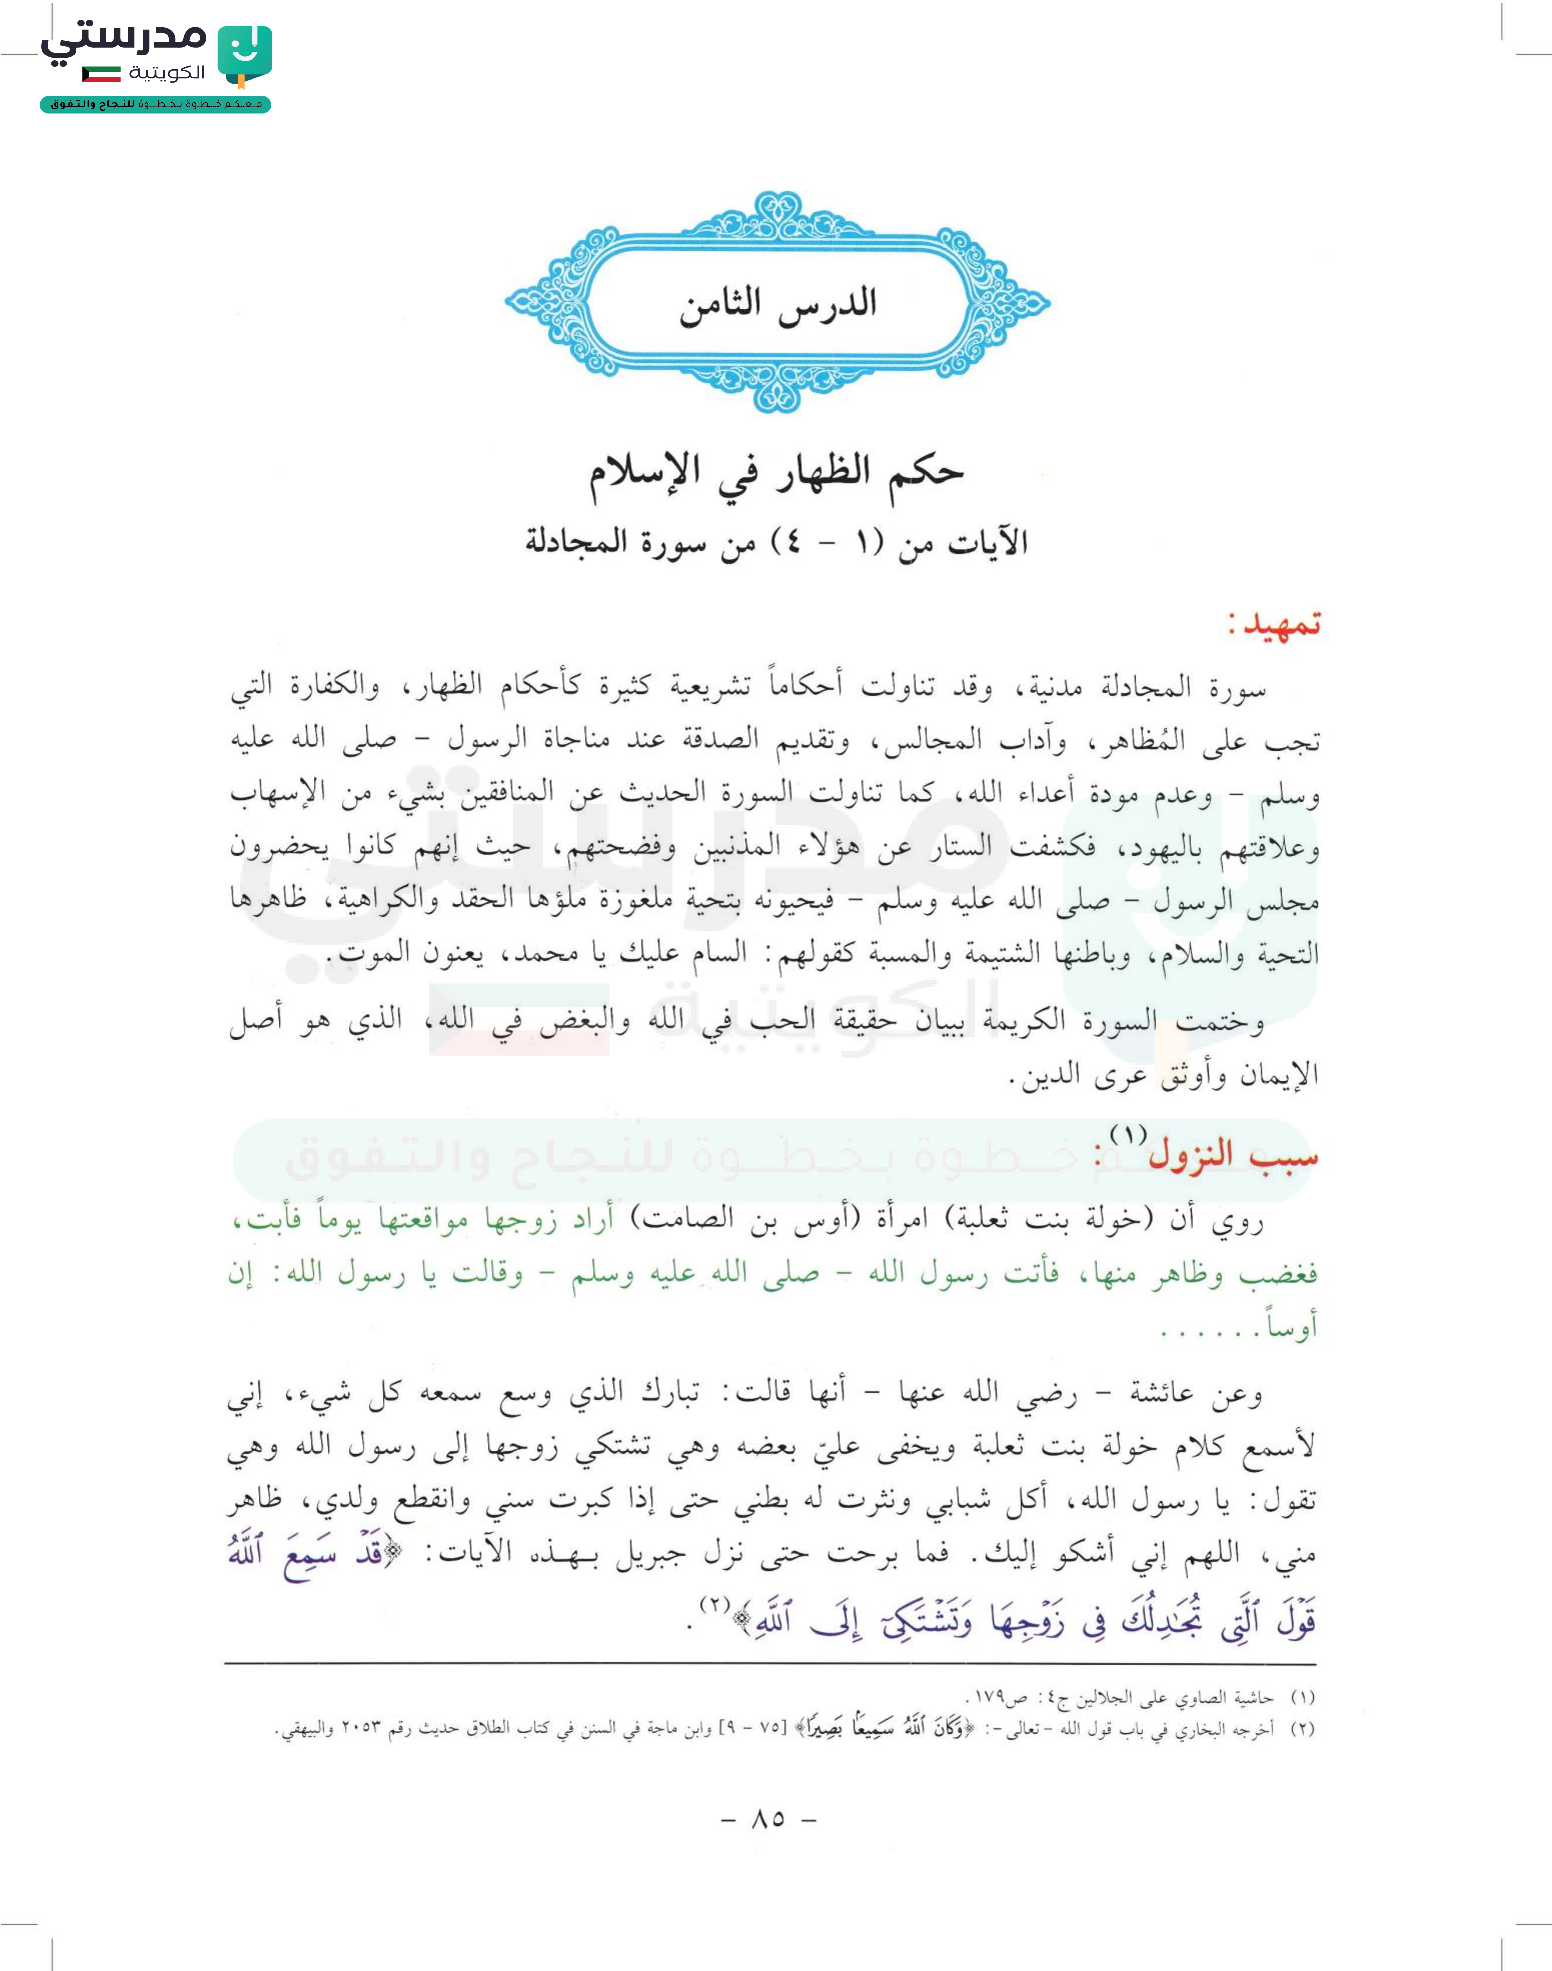 مدرستي
الكويتية
معكم خطوة بخطوة للنجاح والتفوق
الدرس الثامن
حكم الظهار في الإسلام
الآيات من (١ - ٤) من سورة المجادلة
تمهيد:
سورة المجادلة مدنية، وقد تناولت أحكاماً تشريعية كثيرة كأحكام الظهار، والكفارة التي
تجب على المُظاهر، وآداب المجالس، وتقديم الصدقة عند مناجاة الرسول - صلى الله عليه
وسلم - وعدم مودة أعداء الله، كما تناولت السورة الحديث عن المنافقين بشيء من الإسهاب
وعلاقتهم باليهود، فكشفت الستار عن هؤلاء المذنبين وفضحتهم، حيث إنهم كانوا يحضرون
مجلس الرسول - صلى الله عليه وسلم - فيحيونه بتحية ملغوزة ملؤها الحقد والكراهية، ظاهرها
التحية والسلام، وباطنها الشتيمة والمسبة كقولهم: السام عليك يا محمد، يعنون الموت.
وختمت السورة الكريمة ببيان حقيقة الحب في الله والبغض في الله، الذي هو أصل
الإيمان وأوثق عرى الدين.
سبب النزول(١):
روي أن (خولة بنت ثعلبة) امرأة (أوس بن الصامت) أراد زوجها مواقعتها يوماً فأبت،
فغضب وظاهر منها، فأتت رسول الله - صلى الله عليه وسلم - وقالت يا رسول الله: إن
أوساً......
وعن عائشة - رضي الله عنها - أنها قالت: تبارك الذي وسع سمعه كل شيء، إني
لأسمع كلام خولة بنت ثعلبة ويخفى عليّ بعضه وهي تشتكي زوجها إلى رسول الله وهي
تقول: يا رسول الله، أكل شبابي ونثرت له بطني حتى إذا كبرت سني وانقطع ولدي، ظاهر
مني، اللهم إني أشكو إليك. فما برحت حتى نزل جبريل بهذه الآيات: ﴿قَدْ سَمِعَ ٱللَّهُ
قَوْلَ ٱلَّتِى تُجَٰدِلُكَ فِى زَوْجِهَا وَتَشْتَكِىٓ إِلَى ٱللَّهِ﴾(٢).
(١) حاشية الصاوي على الجلالين ج٤: ص١٧٩.
(٢) أخرجه البخاري في باب قول الله -تعالى-: ﴿وَكَانَ ٱللَّهُ سَمِيعًۢا بَصِيرًا﴾ [٧٥ - ٩] وابن ماجة في السنن في كتاب الطلاق حديث رقم ٢٠٥٣ والبيهقي.
- ٨٥ -